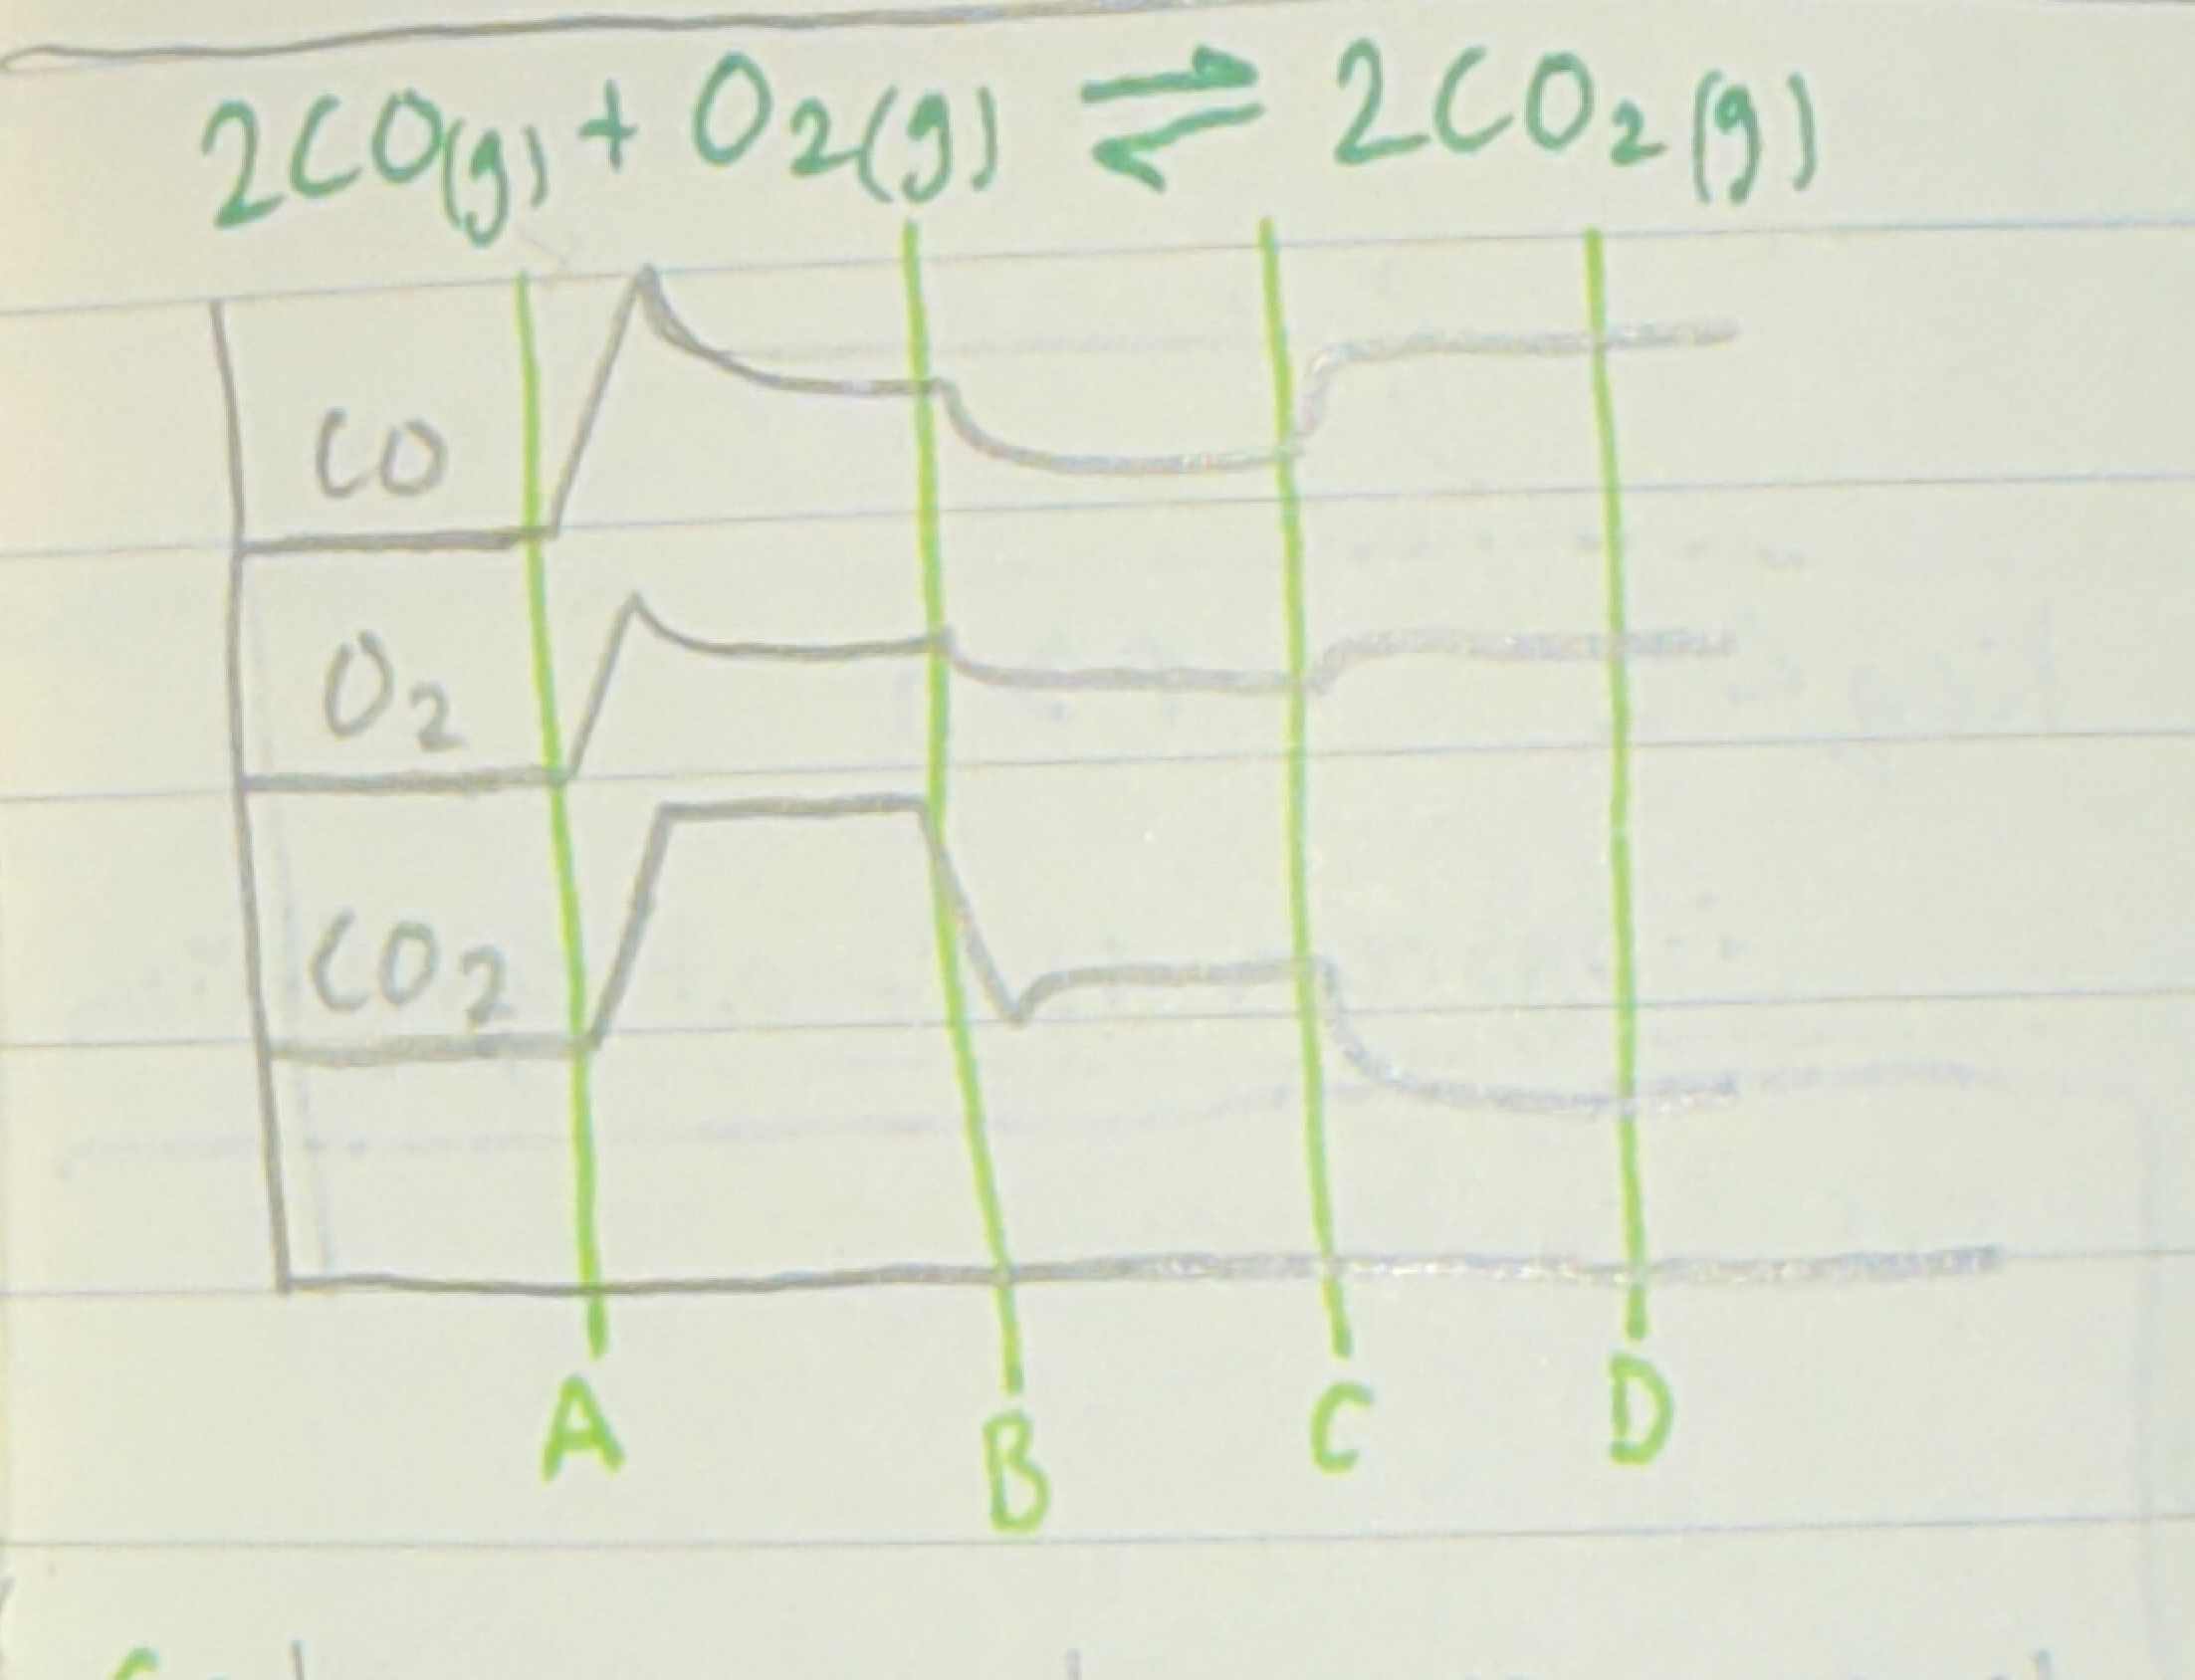 2CO(g) + O₂(g) ⇌ 2CO₂(g)
CO
O₂
CO₂
A B C D